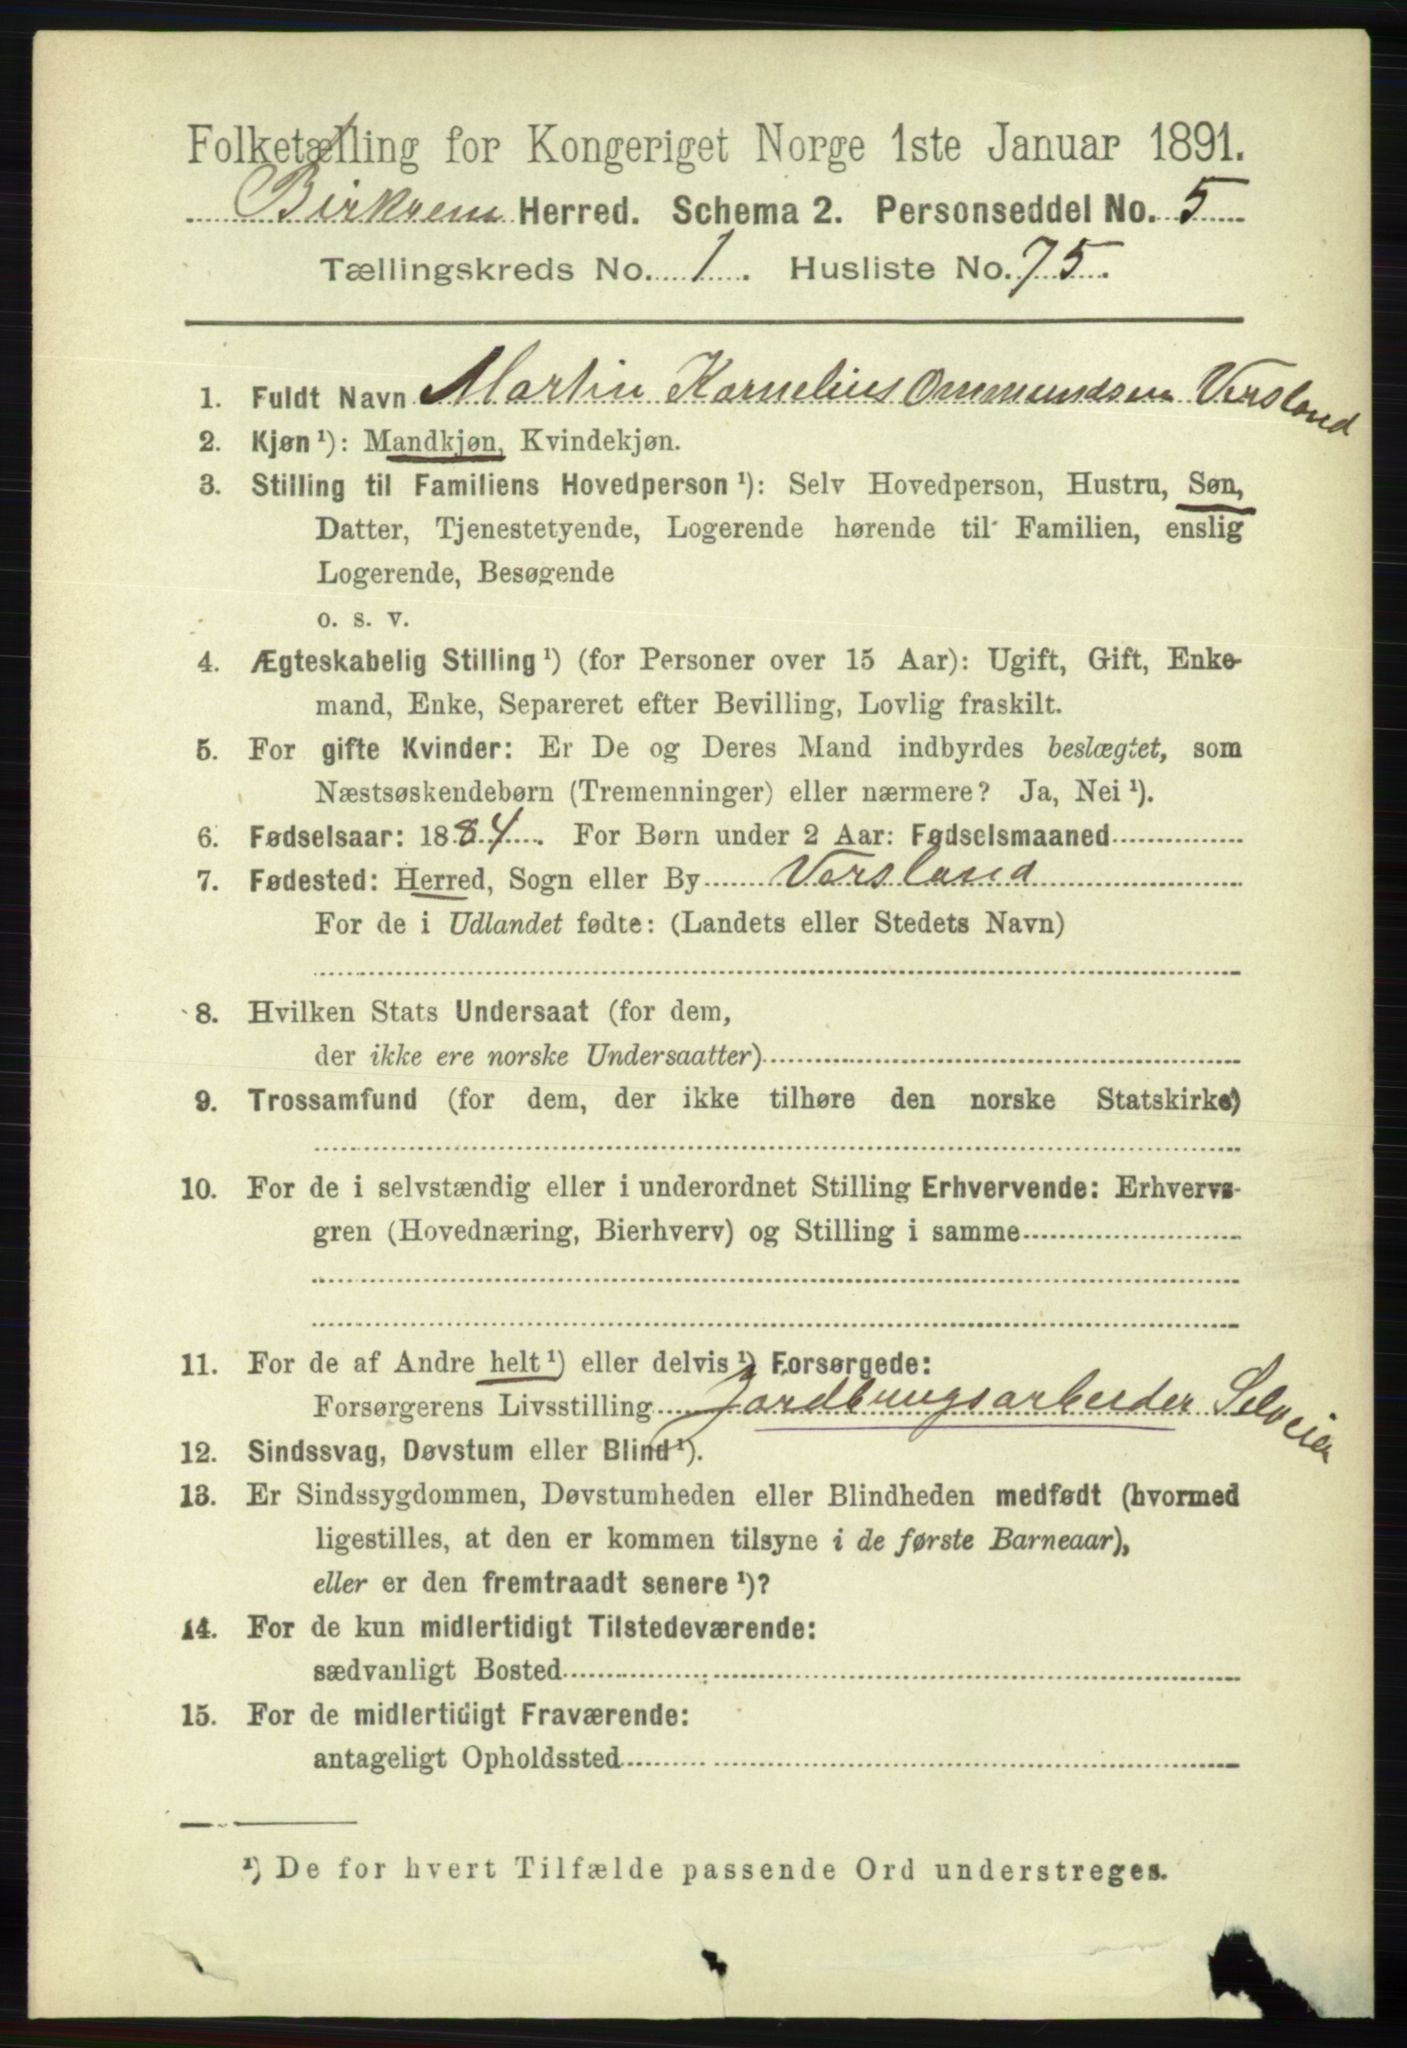 Folketælling for Kongeriget Norge 1ste Januar 1891.
Birkrem Herred. Schema 2. Personseddel No. 5
Tællingskreds No. 1. Husliste No. 75.
1. Fuldt Navn Martin Kornelius Ommundsen Versland
2. Kjøn ¹): Mandkjøn, Kvindekjøn.
3. Stilling til Familiens Hovedperson ¹): Selv Hovedperson, Hustru, Søn,
Datter, Tjenestetyende, Logerende hørende til Familien, enslig
Logerende, Besøgende
o. s. v.
4. Ægteskabelig Stilling ¹) (for Personer over 15 Aar): Ugift, Gift, Enke-
mand, Enke, Separeret efter Bevilling, Lovlig fraskilt.
5. For gifte Kvinder: Er De og Deres Mand indbyrdes beslægtet, som
Næstsøskendebørn (Tremenninger) eller nærmere? Ja, Nei ¹).
6. Fødselsaar: 1884. For Børn under 2 Aar: Fødselsmaaned
7. Fødested: Herred, Sogn eller By Versland
For de i Udlandet fødte: (Landets eller Stedets Navn)
8. Hvilken Stats Undersaat (for dem,
der ikke ere norske Undersaatter)
9. Trossamfund (for dem, der ikke tilhøre den norske Statskirke)
10. For de i selvstændig eller i underordnet Stilling Erhvervende: Erhvervs-
gren (Hovednæring, Bierhverv) og Stilling i samme
11. For de af Andre helt ¹) eller delvis ¹) Forsørgede:
Forsørgerens Livsstilling Jordbrugsarbeider Selveier
12. Sindssvag, Døvstum eller Blind ¹).
13. Er Sindssygdommen, Døvstumheden eller Blindheden medfødt (hvormed
ligestilles, at den er kommen tilsyne i de første Barneaar),
eller er den fremtraadt senere ¹)?
14. For de kun midlertidigt Tilstedeværende:
sædvanligt Bosted
15. For de midlertidigt Fraværende:
antageligt Opholdssted
¹) De for hvert Tilfælde passende Ord understreges.